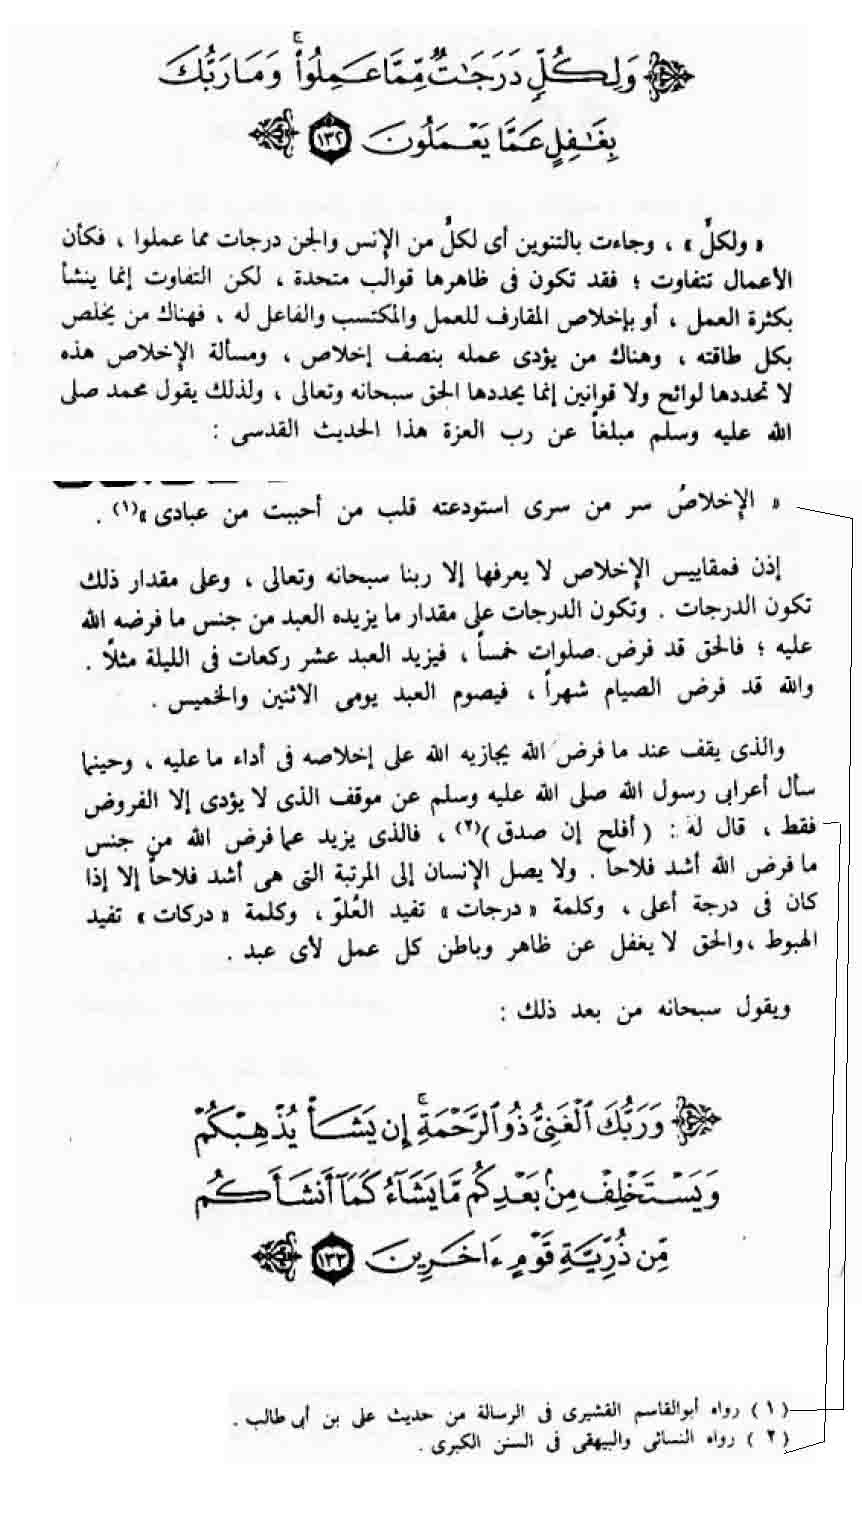 وَلِكُلٍّ دَرَجَٰتٌ مِّمَّا عَمِلُوا۟ ۚ وَمَا رَبُّكَ
بِغَٰفِلٍ عَمَّا يَعْمَلُونَ ١٣٢
« ولكلٍّ » ، وجاءت بالتنوين أى لكلٍّ من الإنس والجن درجات مما عملوا ، فكأن
الأعمال تتفاوت ؛ فقد تكون فى ظاهرها قوالب متحدة ، لكن التفاوت إنما ينشأ
بكثرة العمل ، أو بإخلاص المقارف للعمل والمكتسب والفاعل له ، فهناك من يخلص
بكل طاقته ، وهناك من يؤدى عمله بنصف إخلاص ، ومسألة الإخلاص هذه
لا تحددها لوائح ولا قوانين إنما يحددها الحق سبحانه وتعالى ، ولذلك يقول محمد صلى
الله عليه وسلم مبلغاً عن رب العزة هذا الحديث القدسى :
« الإخلاصُ سر من سرى استودعته قلب من أحببت من عبادى »(١) .
إذن فمقاييس الإخلاص لا يعرفها إلا ربنا سبحانه وتعالى ، وعلى مقدار ذلك
تكون الدرجات . وتكون الدرجات على مقدار ما يزيده العبد من جنس ما فرضه الله
عليه ؛ فالحق قد فرض صلوات خمساً ، فيزيد العبد عشر ركعات فى الليلة مثلاً .
والله قد فرض الصيام شهراً ، فيصوم العبد يومى الاثنين والخميس .
والذى يقف عند ما فرض الله يجازيه الله على إخلاصه فى أداء ما عليه ، وحينما
سأل أعرابى رسول الله صلى الله عليه وسلم عن موقف الذى لا يؤدى إلا الفروض
فقط ، قال له : ( أفلح إن صدق )(٢) ، فالذى يزيد عما فرض الله من جنس
ما فرض الله أشد فلاحاً . ولا يصل الإنسان إلى المرتبة التى هى أشد فلاحاً إلا إذا
كان فى درجة أعلى ، وكلمة « درجات » تفيد العُلوّ ، وكلمة « دركات » تفيد
الهبوط ، والحق لا يغفل عن ظاهر وباطن كل عمل لأى عبد .
ويقول سبحانه من بعد ذلك :
وَرَبُّكَ ٱلْغَنِىُّ ذُو ٱلرَّحْمَةِ ۚ إِن يَشَأْ يُذْهِبْكُمْ
وَيَسْتَخْلِفْ مِنۢ بَعْدِكُم مَّا يَشَآءُ كَمَآ أَنشَأَكُم
مِّن ذُرِّيَّةِ قَوْمٍ ءَاخَرِينَ ١٣٣
( ١ ) رواه أبوالقاسم القشيرى فى الرسالة من حديث على بن أبى طالب .
( ٢ ) رواه النسائى والبيهقى فى السنن الكبرى .